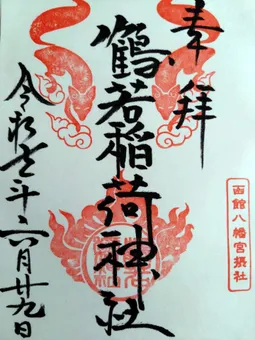 奉拝
鶴若稲荷神社
令和年六月廿九日
函館八幡宮摂社